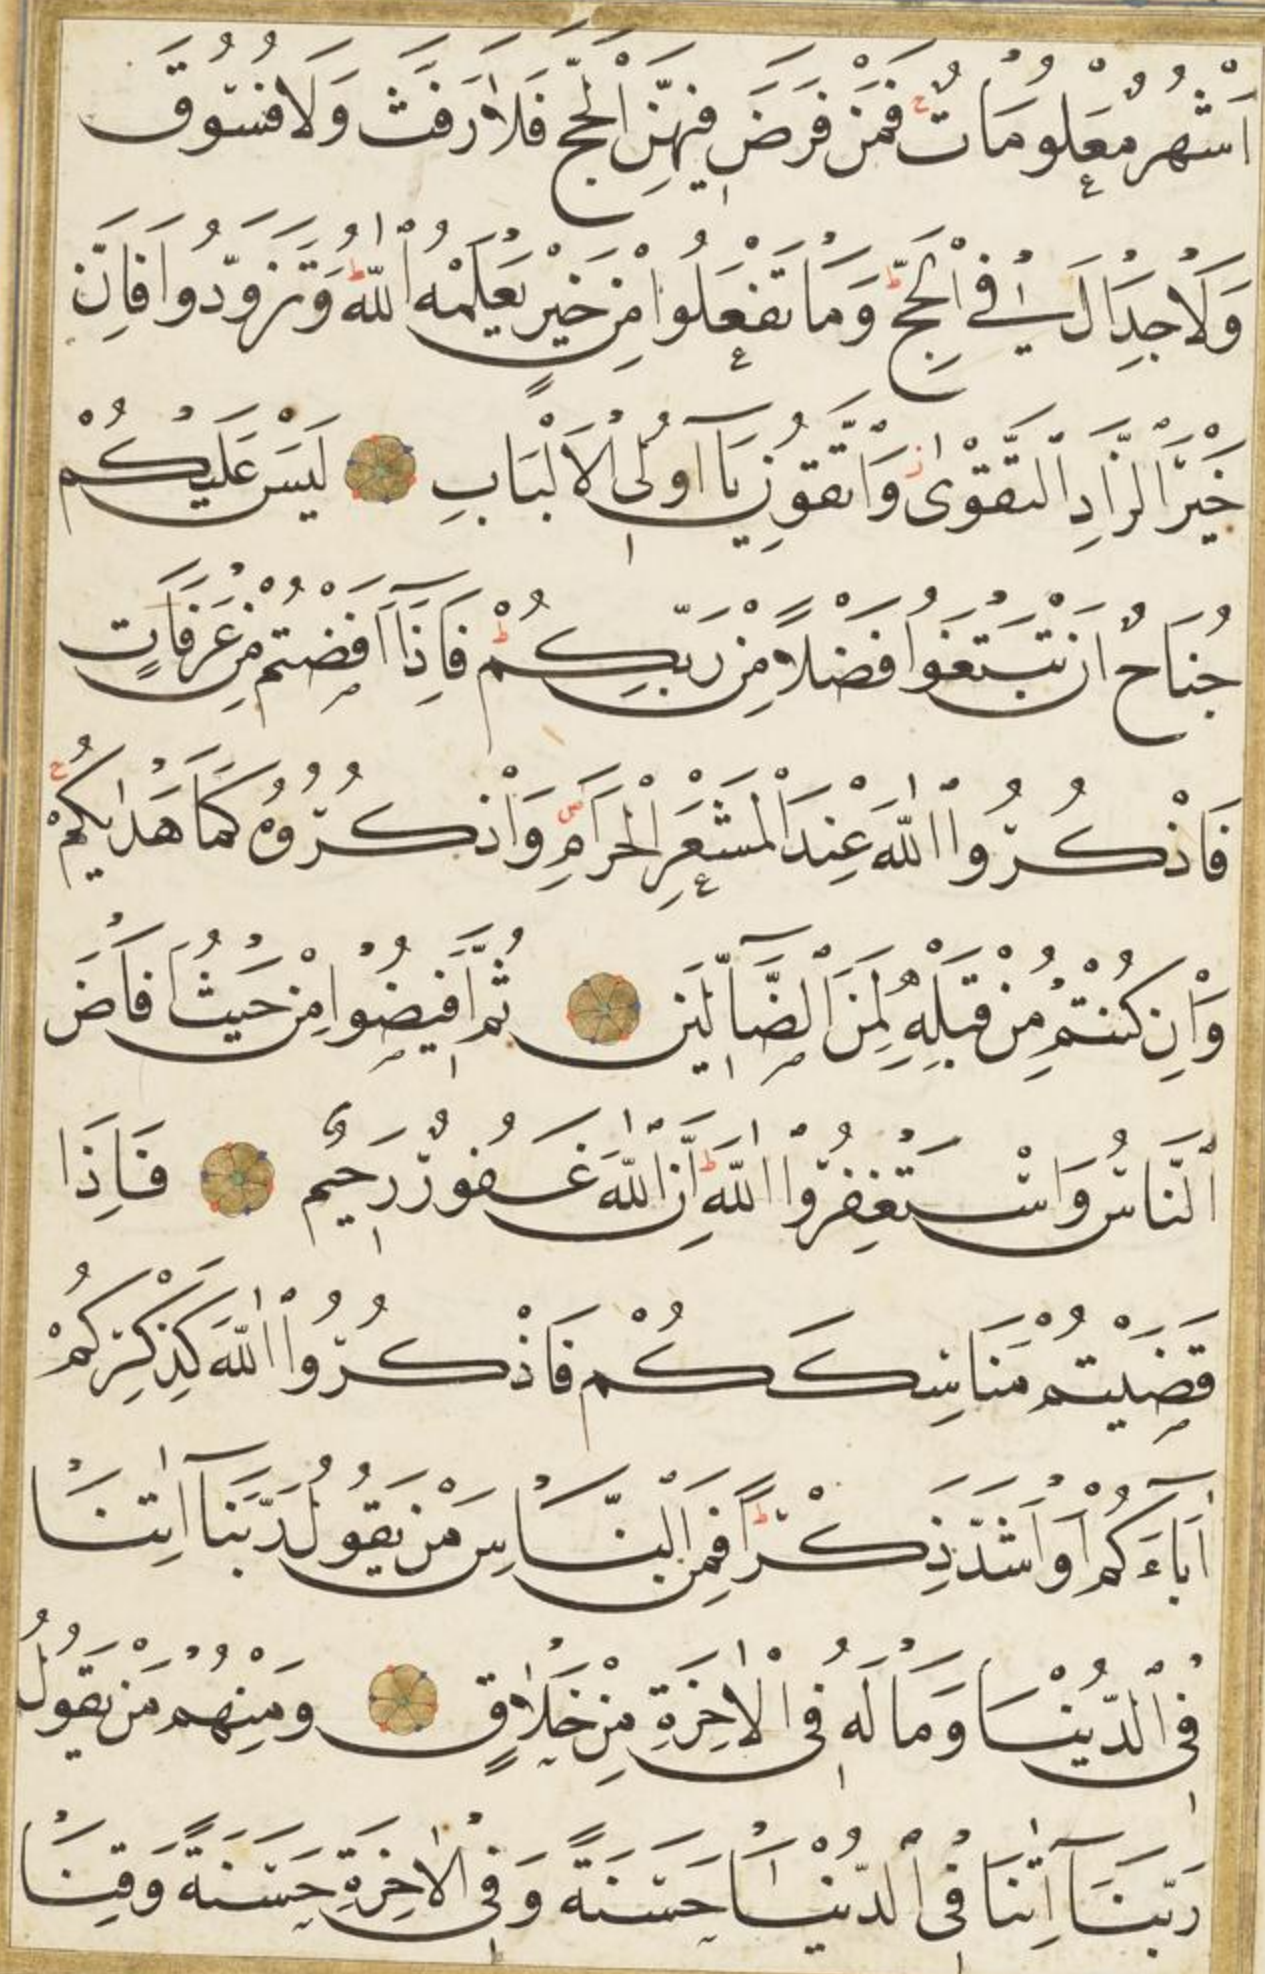 اَشْهُرٌ مَعْلُومَاتٌ فَمَنْ فَرَضَ فِيهِنَّ الْحَجَّ فَلَا رَفَثَ وَلَا فُسُوقَ
وَلَا جِدَالَ فِي الْحَجِّ وَمَا تَفْعَلُوا مِنْ خَيْرٍ يَعْلَمْهُ اللّٰهُ وَتَزَوَّدُوا فَاِنَّ
خَيْرَ الزَّادِ التَّقْوٰى وَاتَّقُونِ يَآ اُولِى الْاَلْبَابِ لَيْسَ عَلَيْكُمْ
جُنَاحٌ اَنْ تَبْتَغُوا فَضْلًا مِنْ رَبِّكُمْ فَاِذَآ اَفَضْتُمْ مِنْ عَرَفَاتٍ
فَاذْكُرُوا اللّٰهَ عِنْدَ الْمَشْعَرِ الْحَرَامِ وَاذْكُرُوهُ كَمَا هَدٰيكُمْ
وَاِنْ كُنْتُمْ مِنْ قَبْلِهِ لَمِنَ الضَّآلِّينَ ثُمَّ اَفِيضُوا مِنْ حَيْثُ اَفَاضَ
النَّاسُ وَاسْتَغْفِرُوا اللّٰهَ اِنَّ اللّٰهَ غَفُورٌ رَحِيمٌ فَاِذَا
قَضَيْتُمْ مَنَاسِكَكُمْ فَاذْكُرُوا اللّٰهَ كَذِكْرِكُمْ
اٰبَآءَكُمْ اَوْ اَشَدَّ ذِكْرًا فَمِنَ النَّاسِ مَنْ يَقُولُ رَبَّنَآ اٰتِنَا
فِى الدُّنْيَا وَمَا لَهُ فِى الْاٰخِرَةِ مِنْ خَلَاقٍ وَمِنْهُمْ مَنْ يَقُولُ
رَبَّنَآ اٰتِنَا فِى الدُّنْيَا حَسَنَةً وَفِى الْاٰخِرَةِ حَسَنَةً وَقِنَا